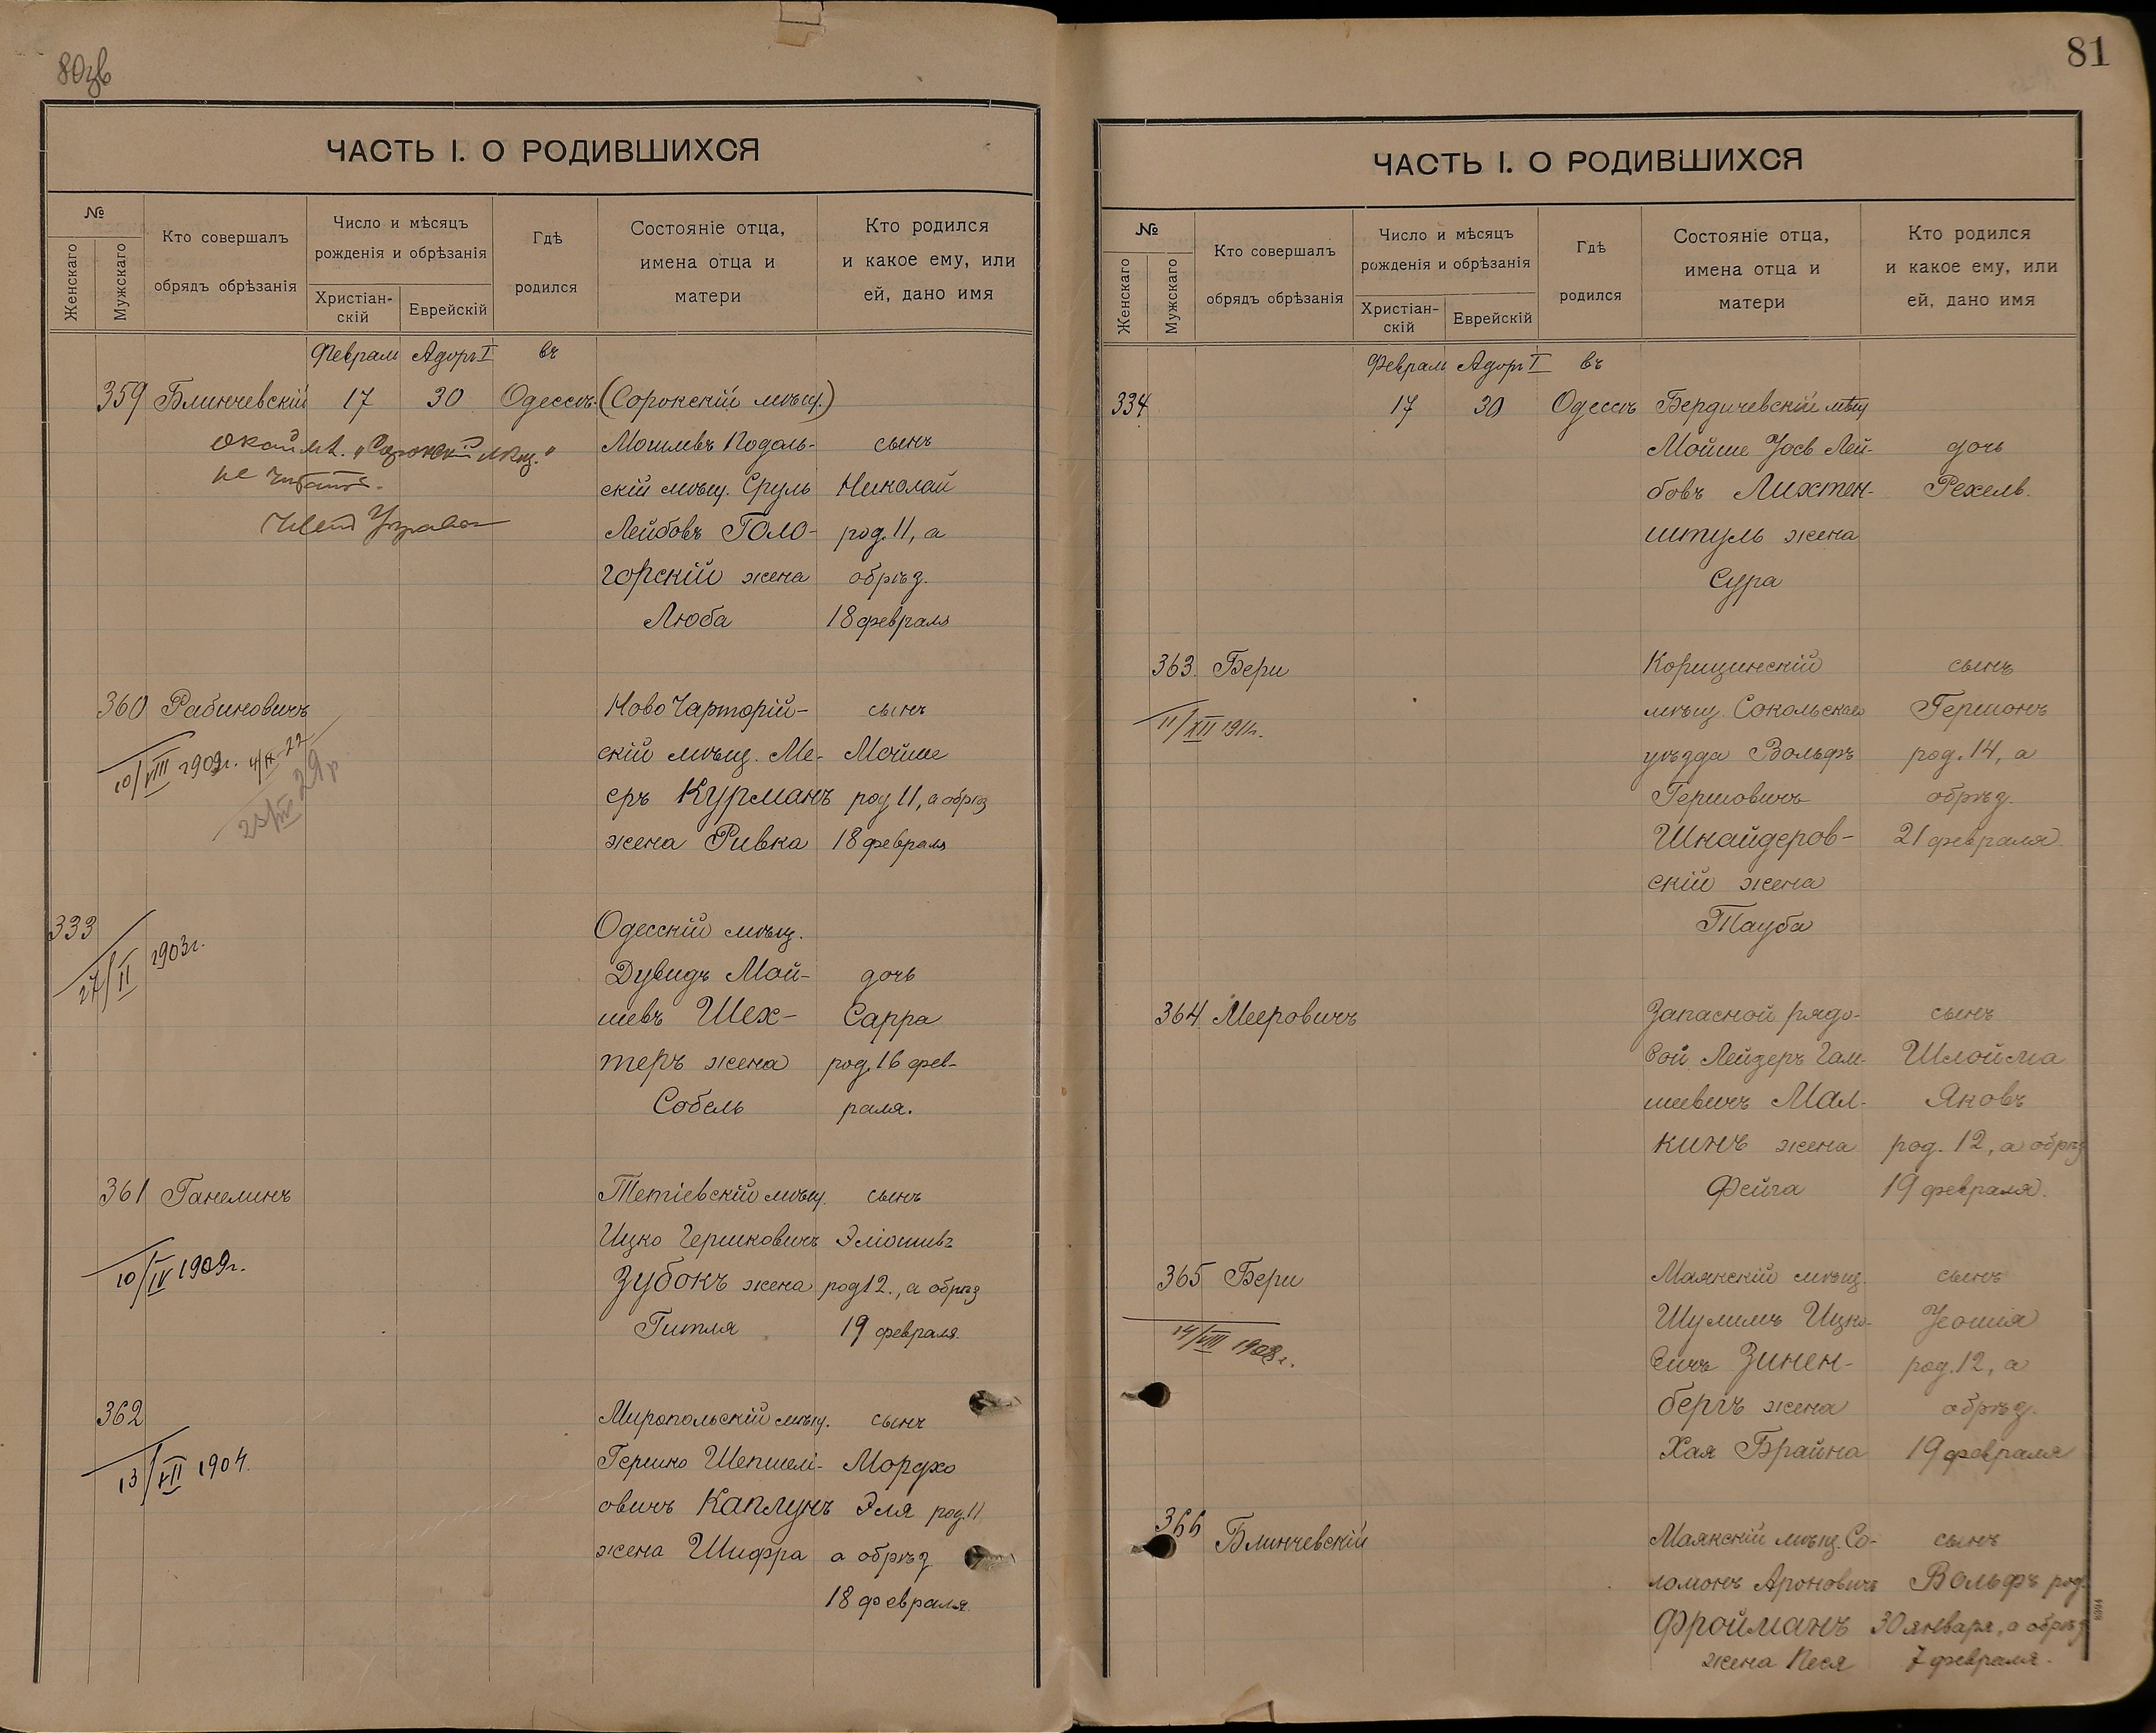 80зв
ЧАСТЬ I. О РОДИВШИХСЯ
№
Женскаго
Мужскаго
Кто совершалъ
обрядъ обрѣзанія
Число и мѣсяцъ
рожденія и обрѣзанія
Христіан-
скій
Еврейскій
Гдѣ
родился
Состояніе отца,
имена отца и
матери
Кто родился
и какое ему, или
ей, дано имя
Февраля Адоръ I въ
359 Блинчевскій 17 30 Одессѣ (Сорокскій мѣщ.)
Могилевъ Подоль- сынъ
скій мѣщ. Сруль Николай
Лейбовъ Голо- род. 11, а
горскій жена обрѣз.
Люба 18 февраля
"Сорокскій мѣщ."
не читать.
360 Рабиновичъ Ново Чарторій- сынъ
скій мѣщ. Ме- Мойше
еръ Курманъ род 11, а обрѣз
жена Ривка 18 февраля
10/VIII 1909г.
29р
333 Одесскій мѣщ.
Дувидъ Мой- дочь
шевъ Шех- Сарра
теръ жена род. 16 фев-
Собель раля.
27/II 1903г.
361 Ганелинъ Тетіевскій мѣщ. сынъ
Ицко Гершковичъ Эліошивъ
Зубокъ жена род 12., а обрѣз
Гитля 19 февраля.
10/IV 1909г.
362 Миропольскій мѣщ. сынъ
Гершко Шепшелі- Мордхо
овичъ Каплунъ Эля род. 11
жена Шифра а обрѣз
18 февраля.
13/VII 1904.
81
ЧАСТЬ I. О РОДИВШИХСЯ
№
Женскаго
Мужскаго
Кто совершалъ
обрядъ обрѣзанія
Число и мѣсяцъ
рожденія и обрѣзанія
Христіан-
скій
Еврейскій
Гдѣ
родился
Состояніе отца,
имена отца и
матери
Кто родился
и какое ему, или
ей, дано имя
Февраля Адоръ I въ
334 17 30 Одессѣ Бердичевскій мѣщ
Мойше Іосъ Лей- дочь
бовъ Лихтен- Рехель.
штуль жена
Сура
363. Бери Корицинскій сынъ
мѣщ. Сокольскаго Гершонъ
уѣзда Вольфъ род. 14, а
Гершовичъ обрѣз.
Шнайдеров- 21 февраля.
скій жена
Тауба
11/XII 1911г.
364 Мееровичъ Запасной рядо- сынъ
вой Лейзеръ Гам- Шлойма
шевичъ Мал- Яковъ
кинъ жена род. 12, а обрѣз
Фейга 19 февраля.
365 Бери Маякскій мѣщ. сынъ
Шулимъ Ицко- Іеошія
вичъ Зинен- род. 12, а
бергъ жена обрѣз.
Хая Брайна 19 февраля
14/VIII 1908г.
366 Блинчевскій Маякскій мѣщ. Со- сынъ
ломонъ Ароновичъ Вольфъ род.
Фройманъ 30 января, а обрѣз
жена Песя 7 февраля.